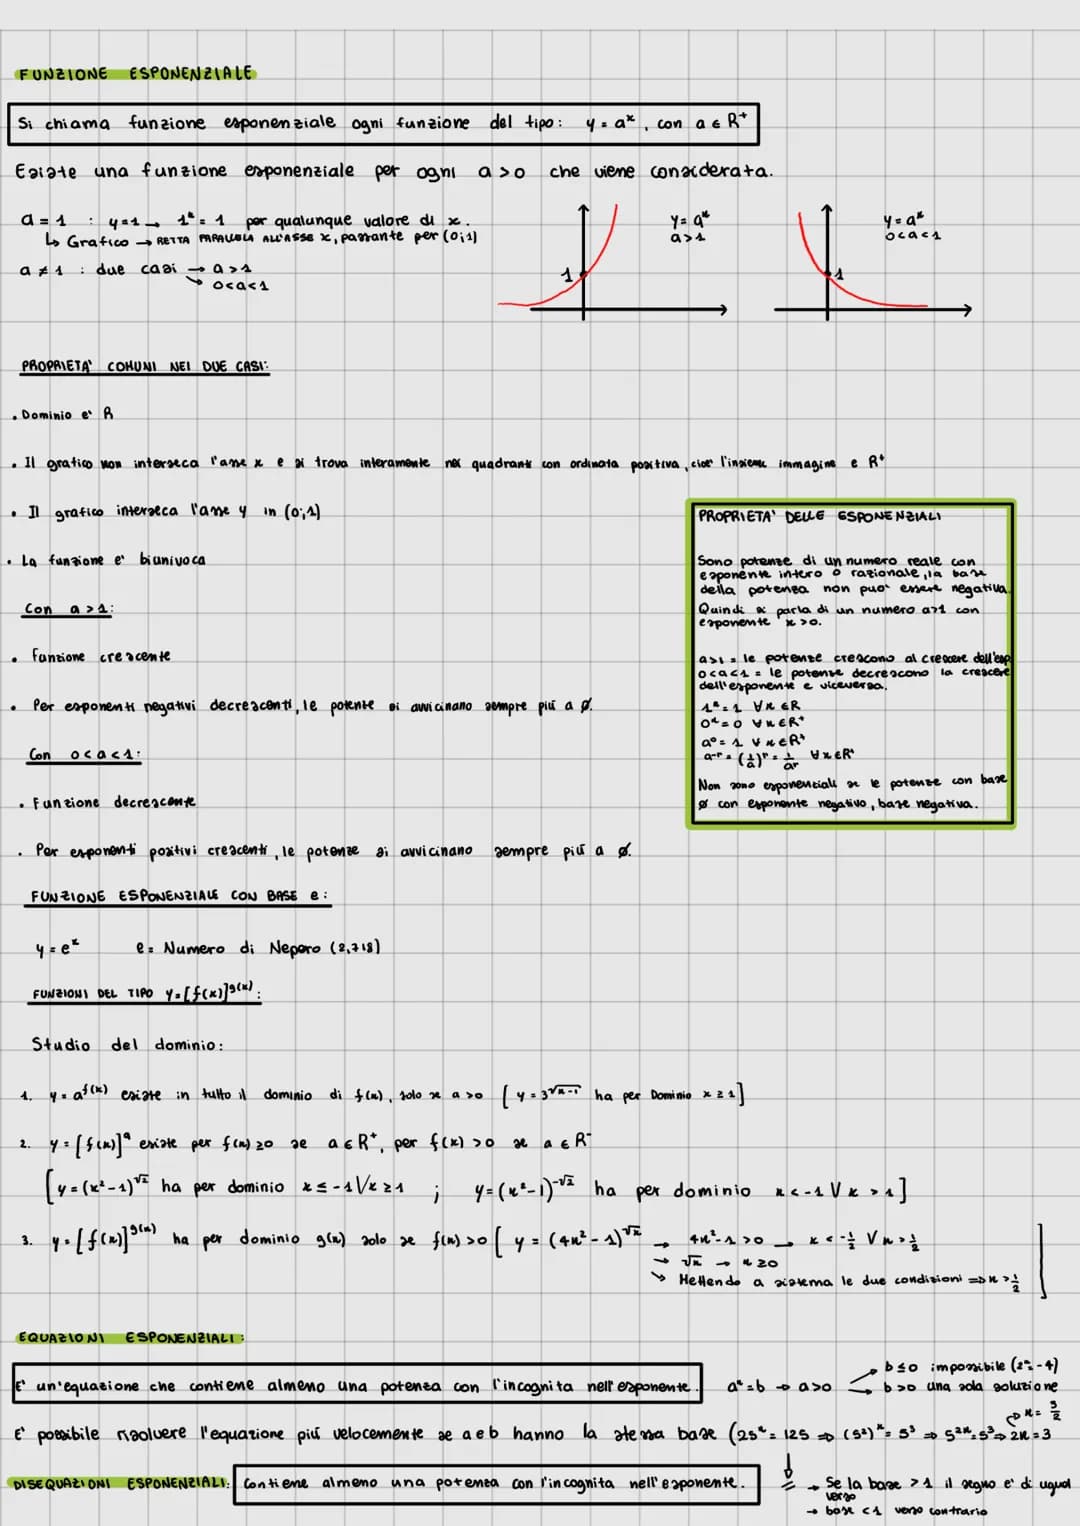 FUNZIONE ESPONENZIALE
Si chiama funzione esponenziale ogni funzione del tipo: y = aˣ, con a ∈ R⁺
Esiste una funzione esponenziale per ogni a>0 che viene considerata.
a = 1 : y=1 → 1ˣ = 1 per qualunque valore di x.
↳ Grafico → RETTA PARALLELA ALL'ASSE x, passante per (0;1)
a ≠ 1 : due casi → a>1
→ 0<a<1
y = aˣ
a>1
1
y = aˣ
0<a<1
1
PROPRIETA' COMUNI NEI DUE CASI:
• Dominio e' R
• Il grafico non interseca l'asse x e si trova interamente nei quadranti con ordinata positiva, cioe' l'insieme immagine e R⁺
• Il grafico interseca l'asse y in (0;1)
• La funzione e' biunivoca
Con a>1:
• funzione crescente
• Per esponenti negativi decrescenti, le potenze si avvicinano sempre più a ∅.
Con 0<a<1:
• Funzione decrescente
• Per esponenti positivi crescenti, le potenze si avvicinano sempre più a ∅.
PROPRIETA' DELLE ESPONENZIALI
Sono potenze di un numero reale con
esponente intero o razionale, la base
della potenza non puo' essere negativa.
Quindi si parla di un numero a>1 con
esponente x>0.
a>1 = le potenze crescono al crescere dell'esp
0<a<1 = le potenze decrescono la crescere
dell'esponente e viceversa.
1ˣ = 1 ∀x ∈R
0ˣ = 0 ∀x∈R⁺
a⁰ = 1 ∀x∈R⁺
a⁻ʳ = (1/a)ʳ = 1/aʳ ∀x∈R⁺
Non sono esponenziali se le potenze con base
∅ con esponente negativo, base negativa.
FUNZIONE ESPONENZIALE CON BASE e:
y = eˣ e = Numero di Nepero (2,718)
FUNZIONI DEL TIPO y=[f(x)]^g(x):
Studio del dominio:
1. y = a^f(x) esiste in tutto il dominio di f(x), solo se a>0 [y = 3^√(x-1) ha per Dominio x ≥ 1]
2. y = [f(x)]ᵃ esiste per f(x) ≥0 se a ∈ R⁺, per f(x) >0 se a ∈ R⁻
[y = (x²-1)^√2 ha per dominio x ≤ -1 V x ≥ 1 ; y = (x²-1)^-√2 ha per dominio x < -1 V x > 1]
3. y = [f(x)]^g(x) ha per dominio g(x) solo se f(x) >0 [y = (4x²-1)^√x → 4x²-1 >0 → x < -1/2 V x > 1/2
→ √x → x ≥0
→ Mettendo a sistema le due condizioni => x > 1/2]
EQUAZIONI ESPONENZIALI:
E' un'equazione che contiene almeno una potenza con l'incognita nell'esponente. aˣ=b → a>0
→ b ≤0 impossibile (2ˣ=-4)
→ b>0 una sola soluzione
E' possibile risolvere l'equazione più velocemente se a e b hanno la stessa base (25ˣ = 125 => (5²)ˣ = 5³ => 5²ˣ=5³ => 2x=3
x = 3/2
DISEQUAZIONI ESPONENZIALI: Contiene almeno una potenza con l'incognita nell'esponente.
→ Se la base >1 il segno e' di ugual
verso
→ base <1 verso contrario